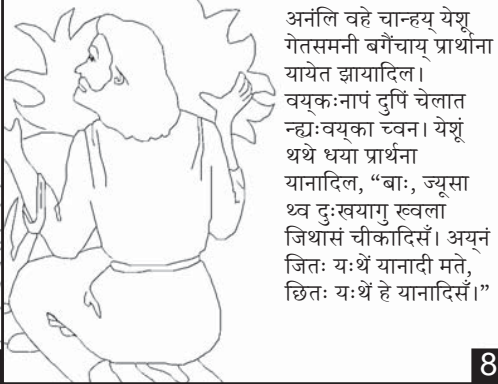 अनंलि वहे चान्हय् येशू
गेतसमनी बगैंचाय् प्रार्थाना
यायेत झायादिल।
वय्‌कःनापं दुपिं चेलात
न्ह्यःवय्‌का च्वन। येशूं
थथे धया प्रार्थना
यानादिल, “बाः, ज्यूसा
थ्व दुःखयागु ख्वला
जिथासं चीकादिसँ। अय्‌नं
जितः यःथें यानादी मते,
छितः यःथें हे यानादिसँ।”
8